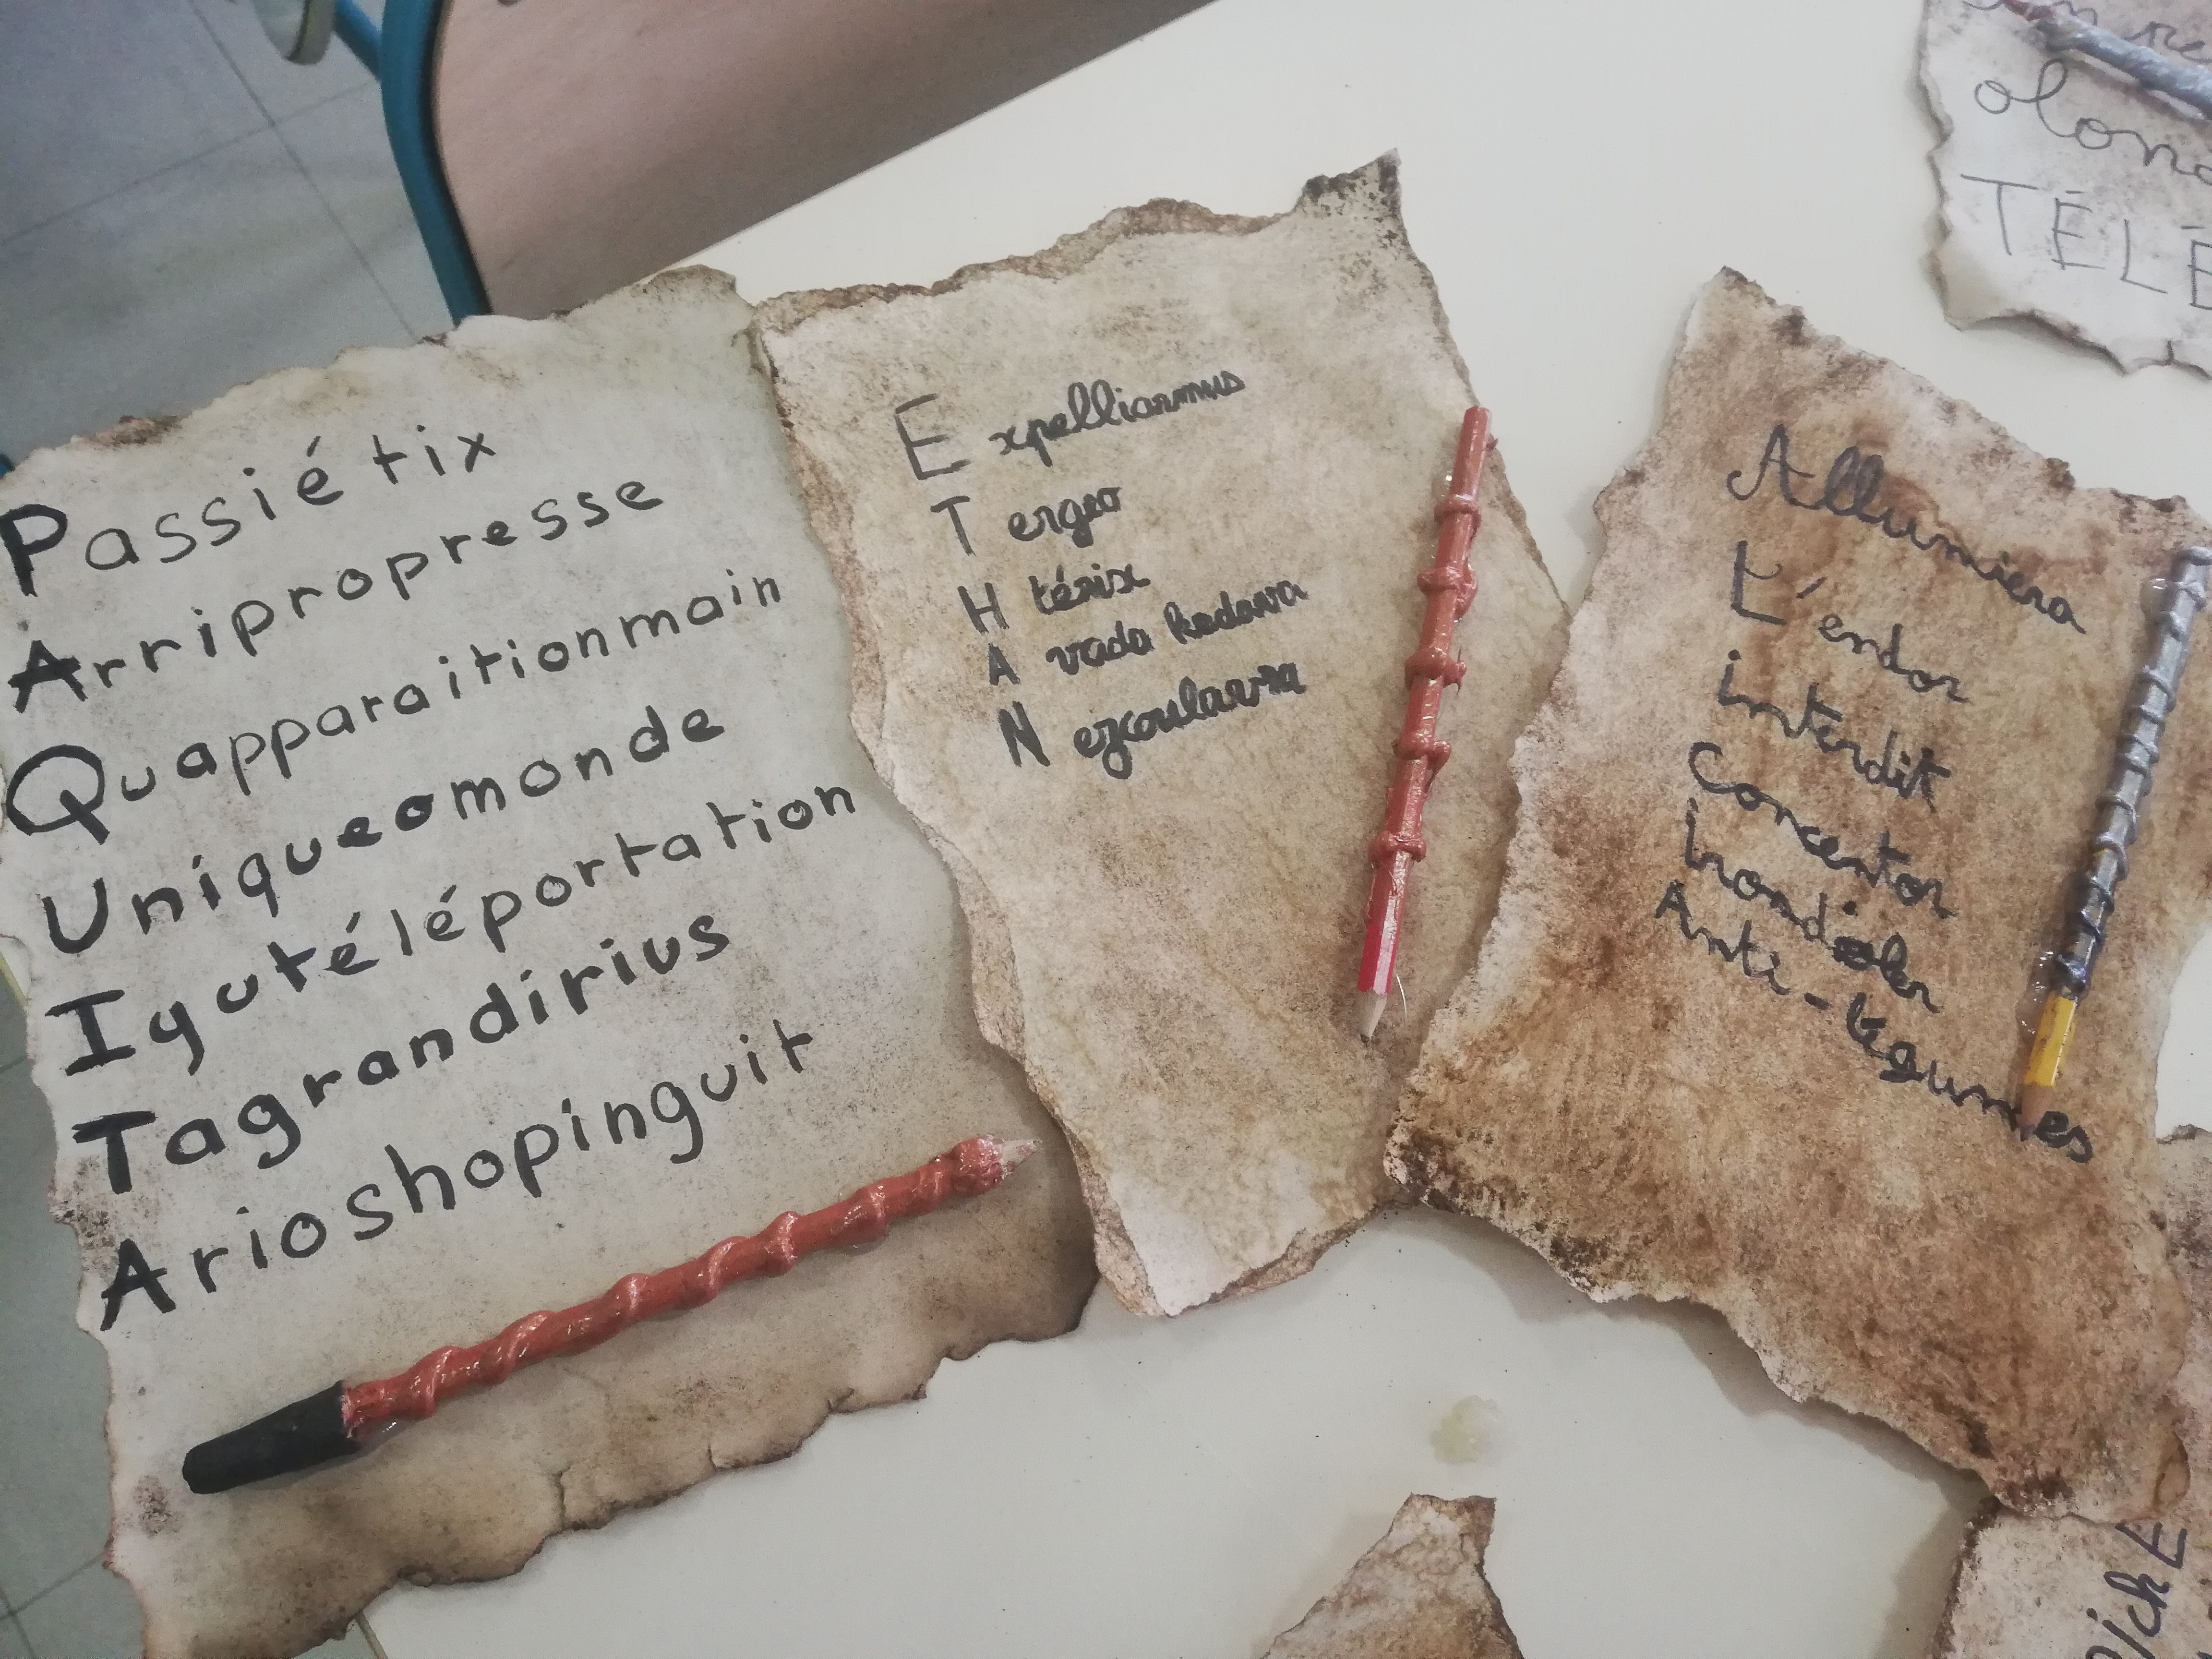 Passiétix
Arripropresse
Quapparaitionmain
Uniqueomonde
Iyutéléportation
Tagrandirius
Arioshopinguit
E xpelliarmus
T ergeo
H térix
A vada kedavra
N ezcoulavra
Allumiera
L'endor
interdit
Concentor
Anti-légumes
TÉLÉ